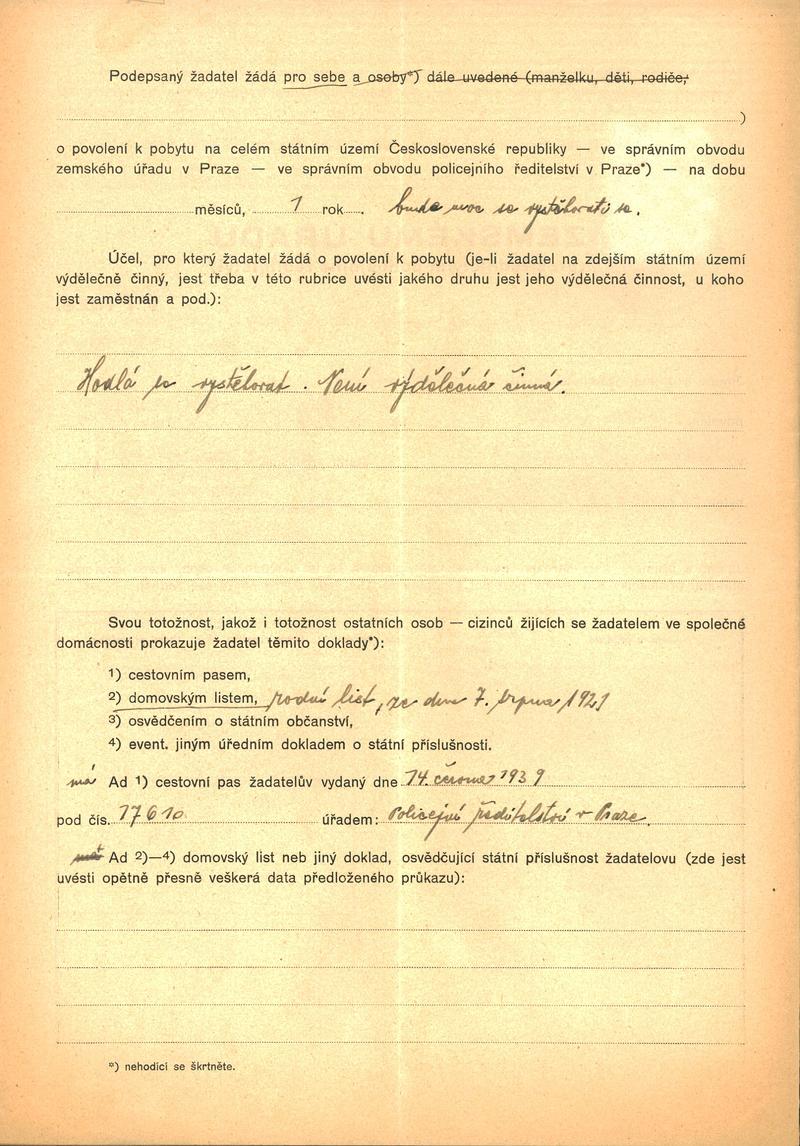 Podepsaný žadatel žádá pro sebe a osoby*) dále uvedené (manželku, děti, rodiče,
)
o povolení k pobytu na celém státním území Československé republiky — ve správním obvodu
zemského úřadu v Praze — ve správním obvodu policejního ředitelství v Praze*) — na dobu
měsíců, 1 rok. bude se vystěhovati se.
Účel, pro který žadatel žádá o povolení k pobytu (je-li žadatel na zdejším státním území
výdělečně činný, jest třeba v této rubrice uvésti jakého druhu jest jeho výdělečná činnost, u koho
jest zaměstnán a pod.):
Hodlá se vystěhovat. Není výdělečná činná.
Svou totožnost, jakož i totožnost ostatních osob — cizinců žijících se žadatelem ve společné
domácnosti prokazuje žadatel těmito doklady*):
1) cestovním pasem,
2) domovským listem, rodní list, ze dne 7. srpna 1921
3) osvědčením o státním občanství,
4) event. jiným úředním dokladem o státní příslušnosti.
má Ad 1) cestovní pas žadatelův vydaný dne 14. června 1939
pod čís. 17610 úřadem: Policejní ředitelství v Praze.
Ad 2)—4) domovský list neb jiný doklad, osvědčující státní příslušnost žadatelovu (zde jest
uvésti opětně přesně veškerá data předloženého průkazu):
*) nehodící se škrtněte.